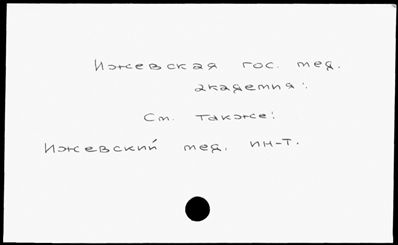 Ижевская гос. мед.
академия:
См. также:
Ижевский мед. ин-т.